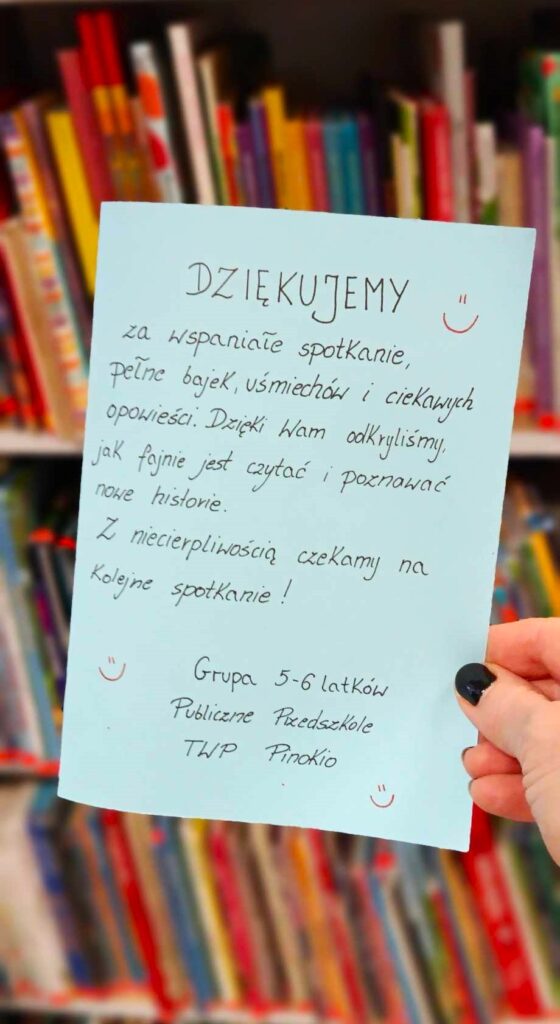 DZIĘKUJEMY
za wspaniałe spotkanie,
pełne bajek, uśmiechów i ciekawych
opowieści. Dzięki Wam odkryliśmy,
jak fajnie jest czytać i poznawać
nowe historie.
Z niecierpliwością czekamy na
kolejne spotkanie!
Grupa 5-6 latków
Publiczne Przedszkole
TWP Pinokio